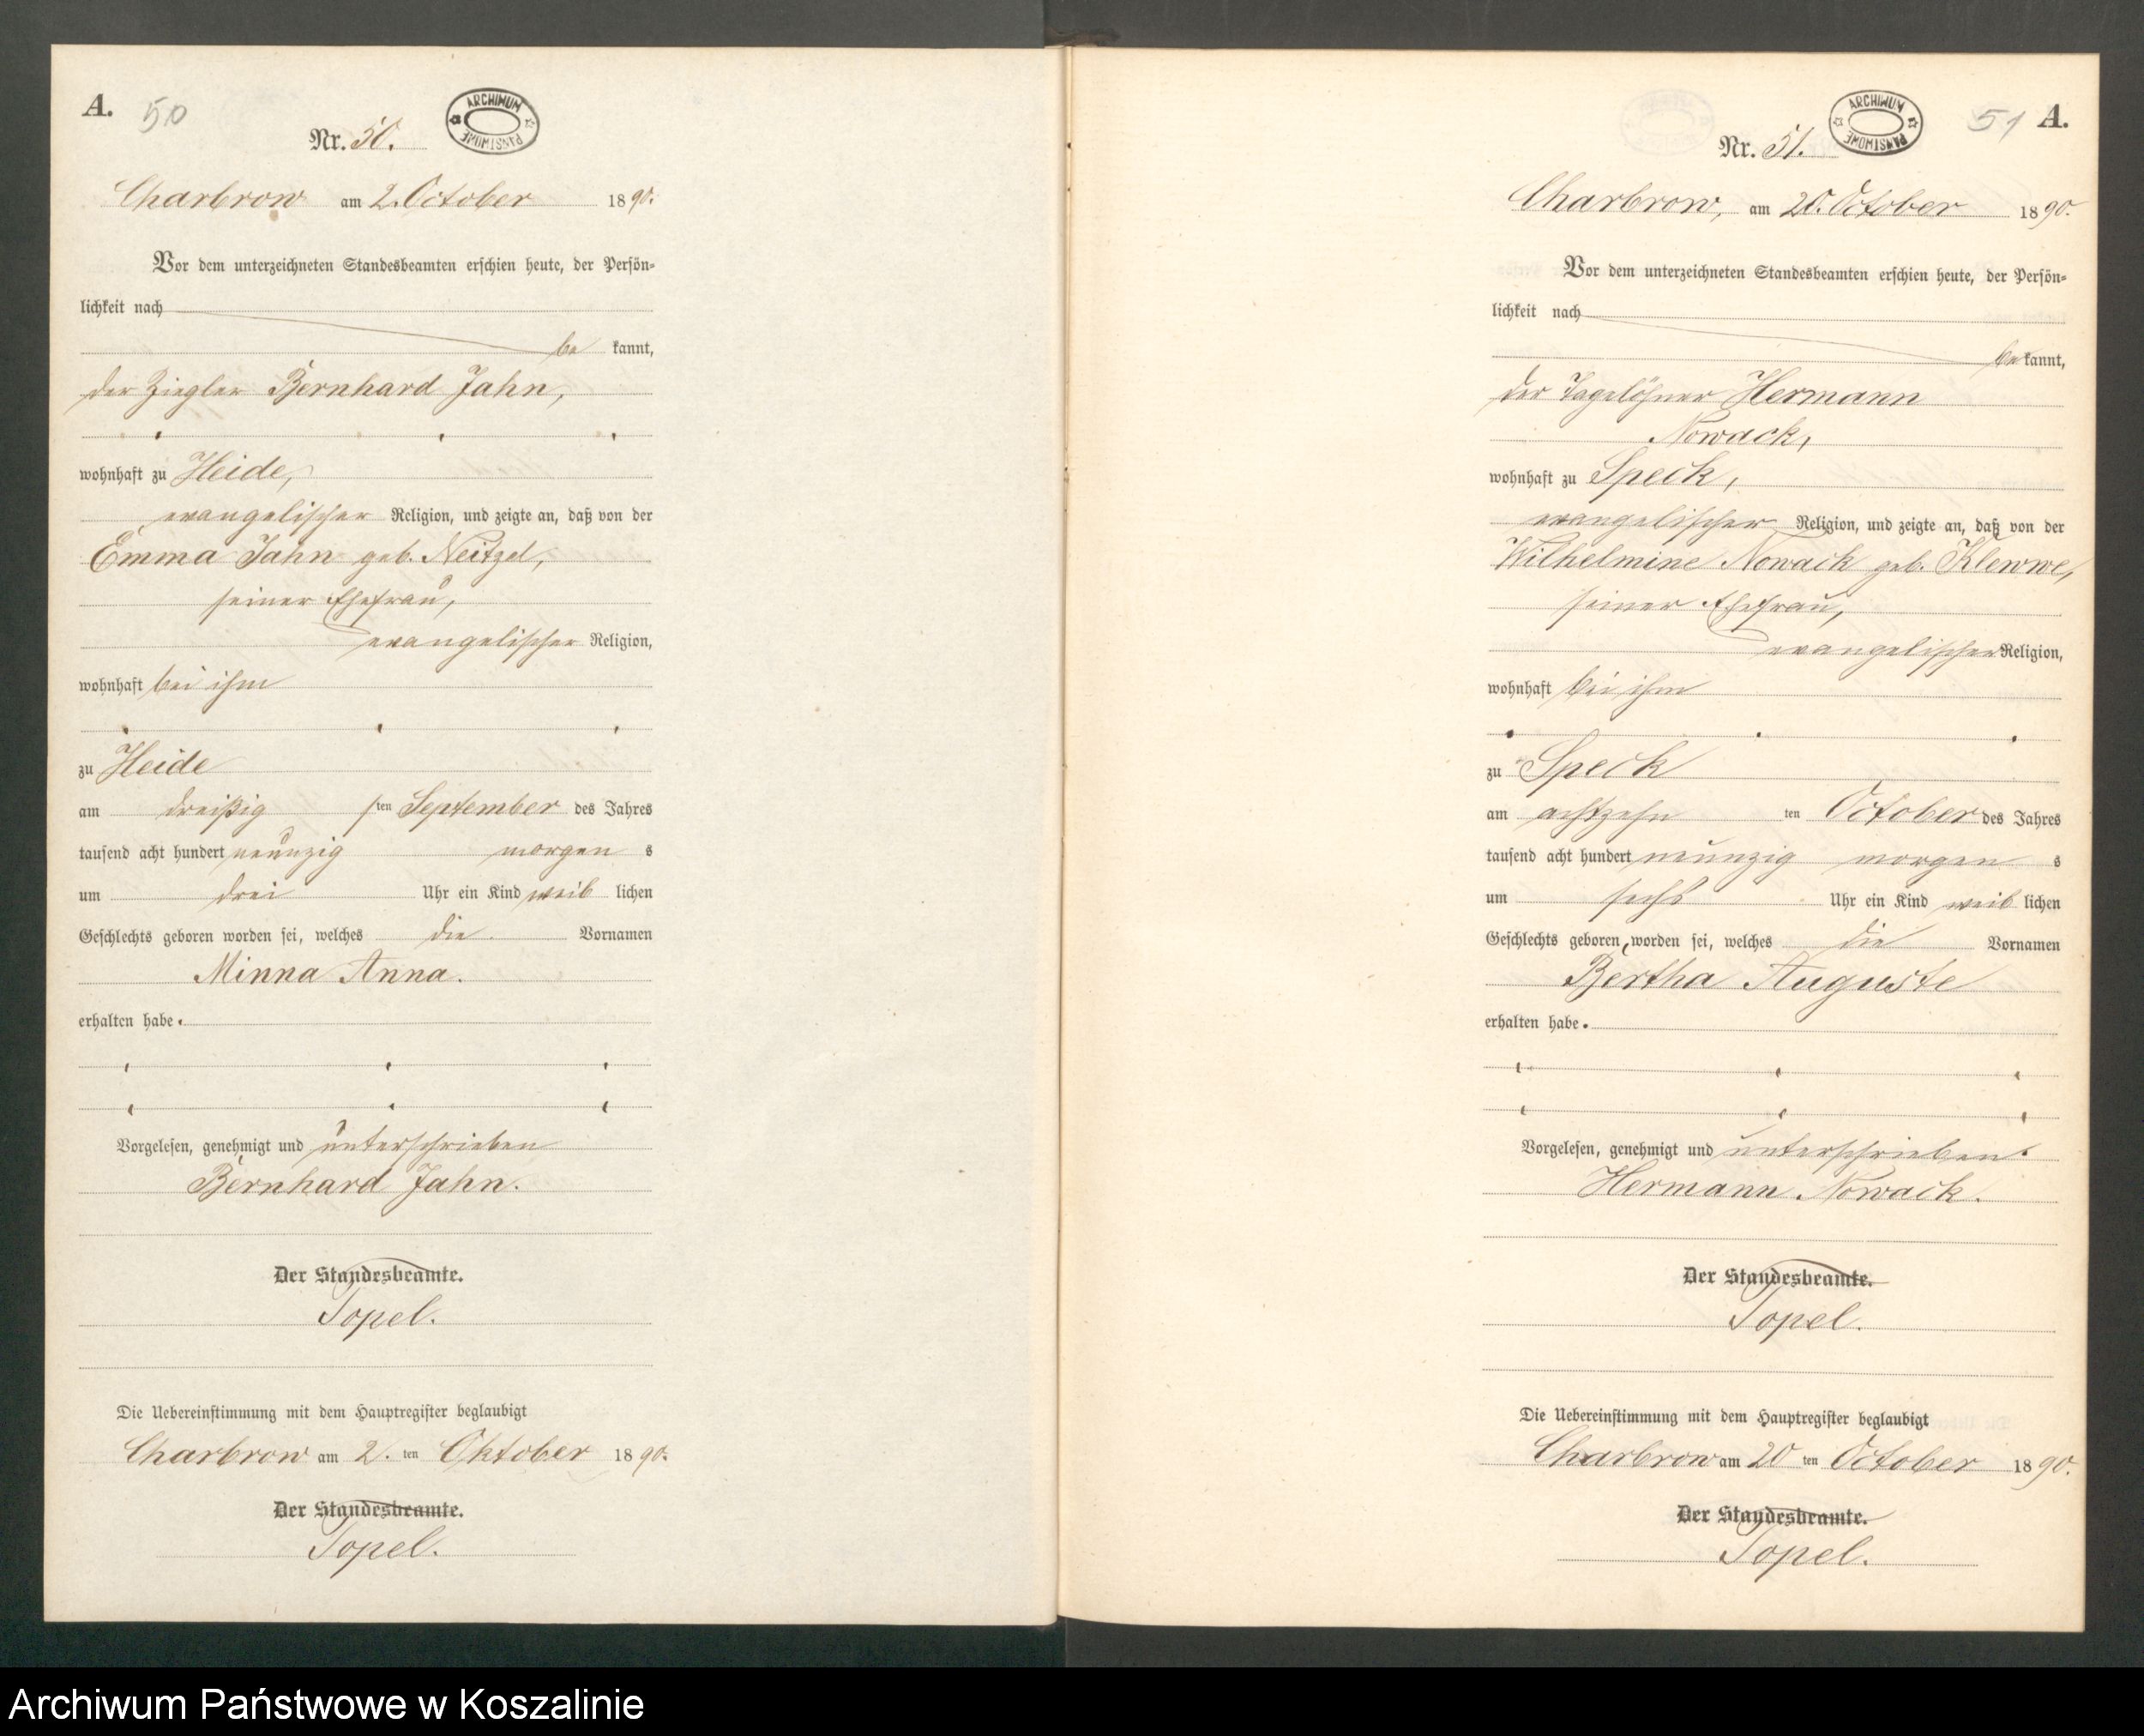 A. 50
ARCHIWUM PAŃSTWOWE
Nr. 50.
Charbrow am 2. October 1890.
Vor dem unterzeichneten Standesbeamten erschien heute, der Persön-
lichkeit nach
be kannt,
der Ziegler Bernhard Jahn,
wohnhaft zu Heide,
evangelischer Religion, und zeigte an, daß von der
Emma Jahn geb. Neitzel,
seiner Ehefrau,
evangelischer Religion,
wohnhaft bei ihm
zu Heide
am dreißig sten September des Jahres
tausend acht hundert neunzig morgen s
um drei Uhr ein Kind weib lichen
Geschlechts geboren worden sei, welches die Vornamen
Minna Anna.
erhalten habe.
Vorgelesen, genehmigt und unterschrieben
Bernhard Jahn.
Der Standesbeamte.
Topel.
Die Uebereinstimmung mit dem Hauptregister beglaubigt
Charbrow am 2. ten Oktober 1890.
Der Standesbeamte.
Topel.
51 A.
ARCHIWUM PAŃSTWOWE
Nr. 51.
Charbrow, am 20. October 1890.
Vor dem unterzeichneten Standesbeamten erschien heute, der Persön-
lichkeit nach
be kannt,
der Tagelöhner Hermann
Nowack,
wohnhaft zu Speck,
evangelischer Religion, und zeigte an, daß von der
Wilhelmine Nowack geb. Klewwe,
seiner Ehefrau,
evangelischer Religion,
wohnhaft bei ihm
zu Speck
am achtzehn ten October des Jahres
tausend acht hundert neunzig morgen s
um sechs Uhr ein Kind weib lichen
Geschlechts geboren worden sei, welches die Vornamen
Bertha Auguste
erhalten habe.
Vorgelesen, genehmigt und unterschrieben.
Hermann Nowack.
Der Standesbeamte.
Topel.
Die Uebereinstimmung mit dem Hauptregister beglaubigt
Charbrow am 20 ten October 1890.
Der Standesbeamte.
Topel.
Archiwum Państwowe w Koszalinie